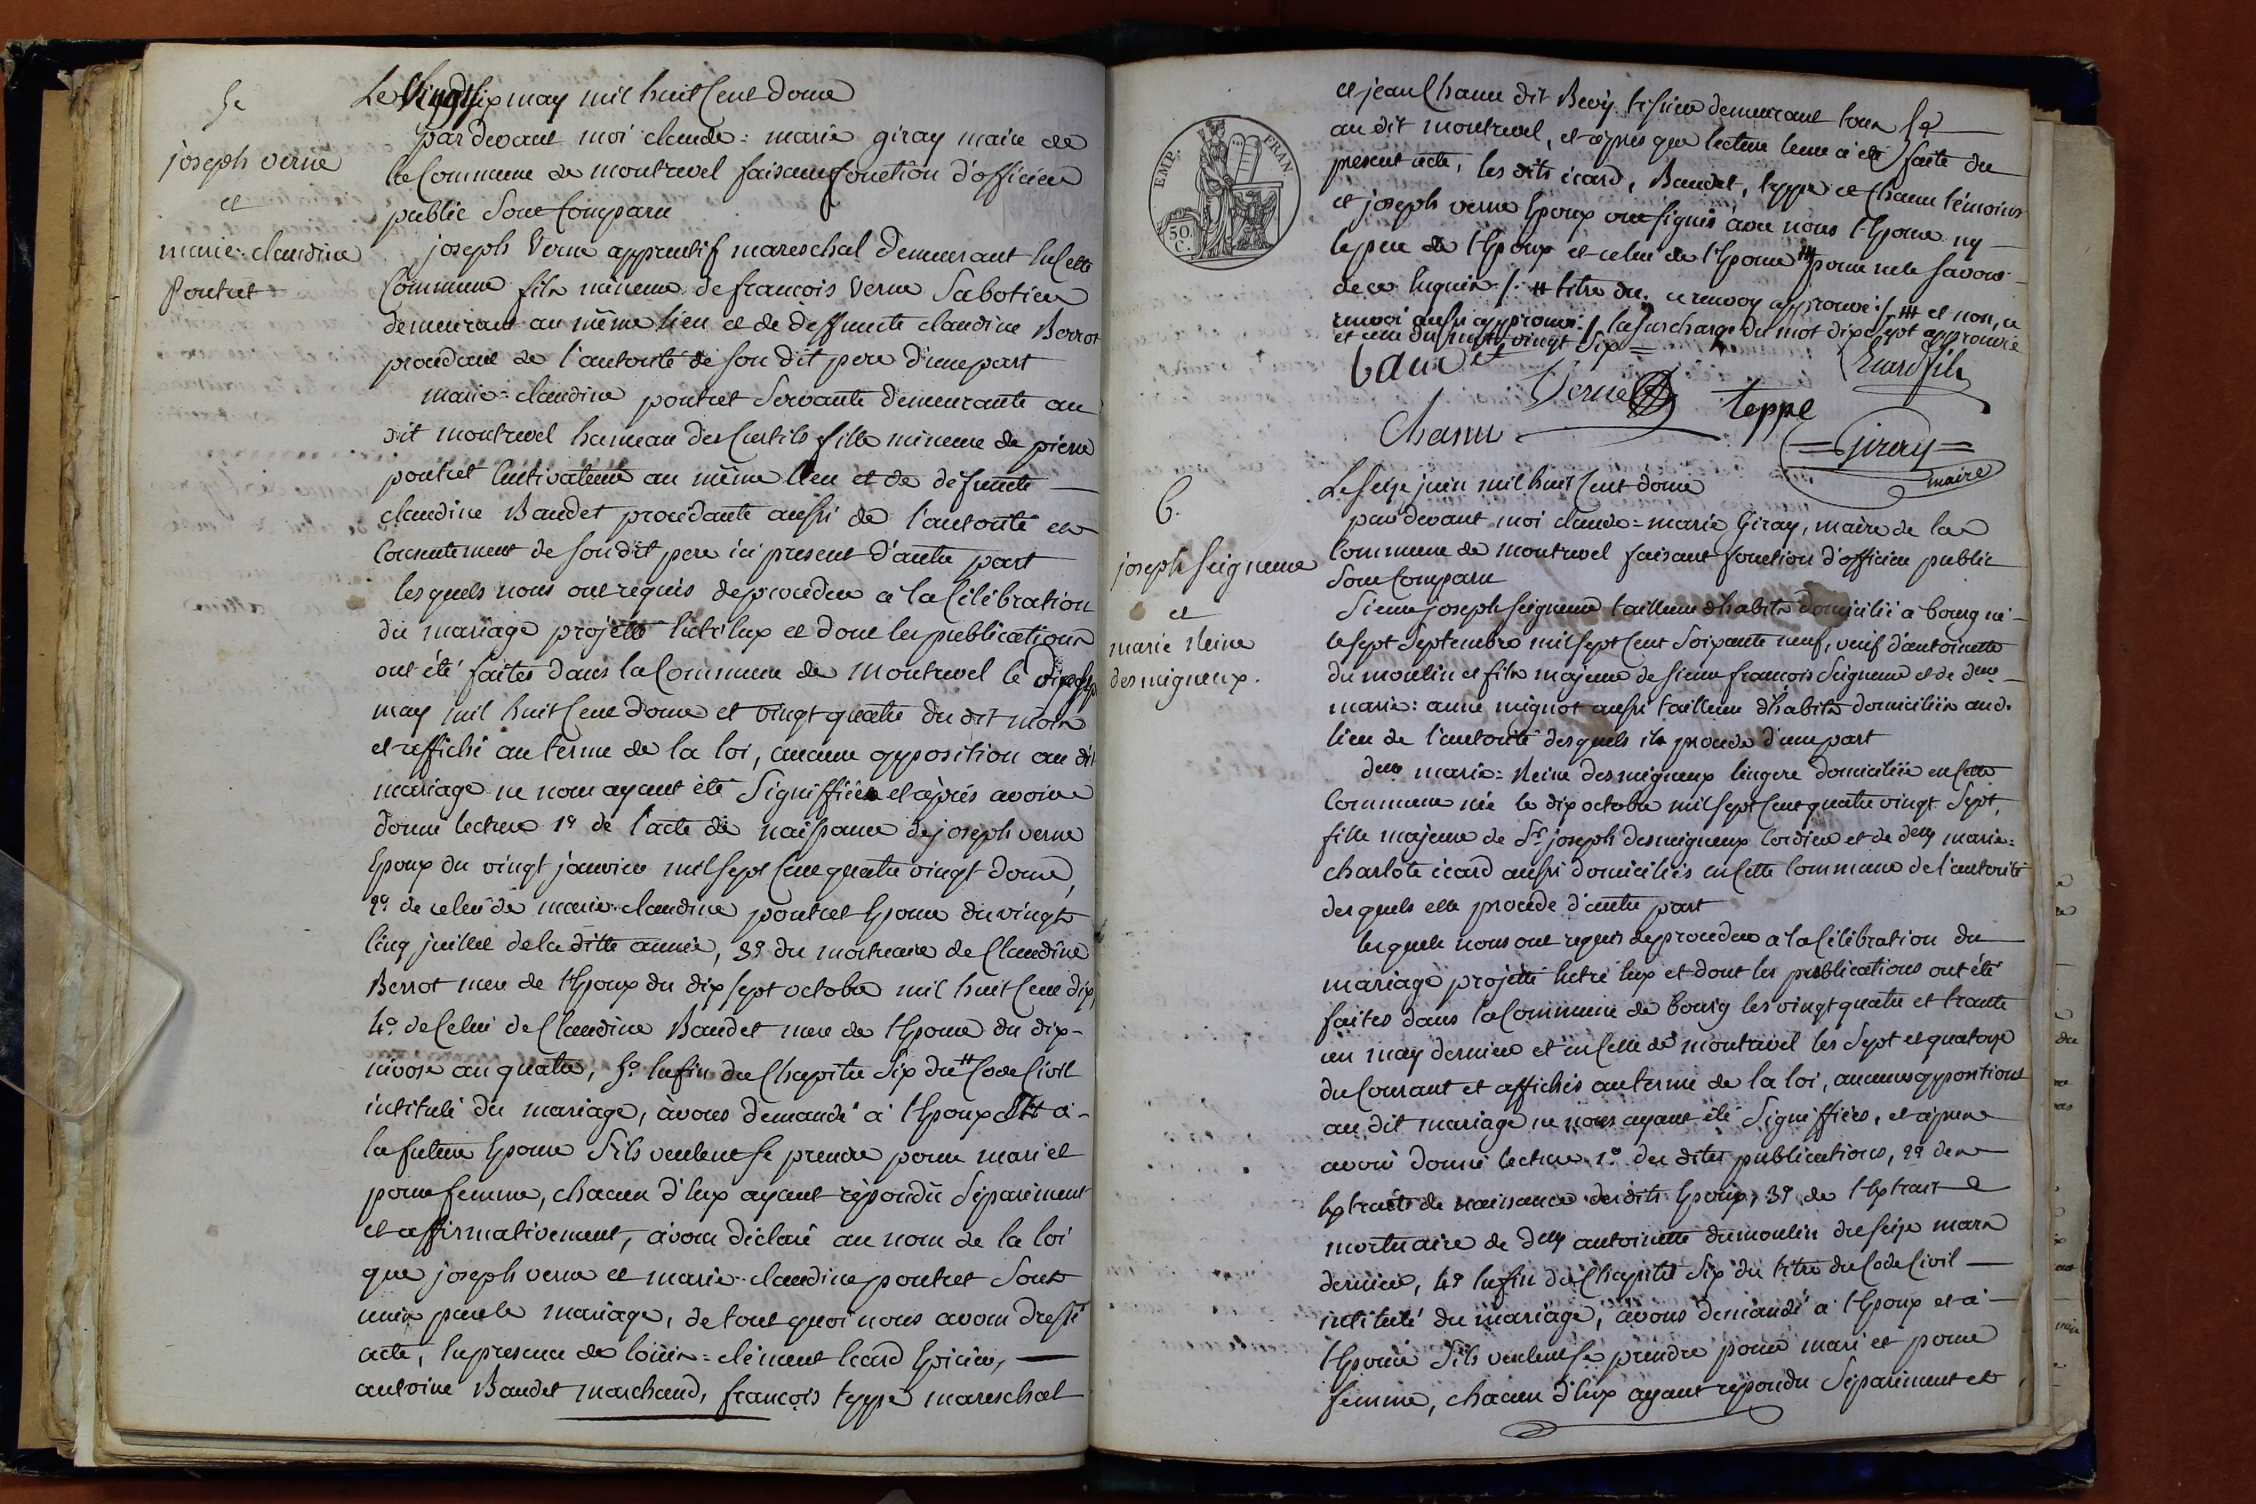 5e
joseph verne
et
marie-claudine
Pontret
Le Vingt six may mil huit Cent douze
par devant moi claude=marie giray maire de
la Commune de montrevel faisant fonction d'officier
public Sont Comparu
joseph Verne apprentif mareschal demeurant En Cette
Commune fils mineur de francois Verne Sabotier
demeurant au même lieu et de deffuncte claudine Berrot
procedant de l'autorité de son dit pere d'une part
marie=claudine pontret Servante demeurante au
dit montrevel hameau des Curtils fille mineure de pierre
pontret Cultivateur au même lieu et de défuncte
claudine Baudet procedante aussi de l'autorité et
Consentement de son dit pere ici present d'autre part
les quels nous ont requis de proceder à la Célébration
du mariage projetté Entr'Eux et dont les publications
ont été faites dans la Commune de Montrevel le dix sept
may mil huit Cent douze et vingt quatre du dit mois
et affiché au terme de la loi, aucune opposition au dit
mariage ne nous ayant été Signiffiée et après avoir
donné lecture 1º de l'acte de naissance de joseph verne
Epoux du vingt janvier mil sept Cent quatre vingt douze,
2º de celui de marie-claudine pontret Epouse du vingt
Cinq juillet de la ditte année, 3º du mortuaire de Claudine
Berrot mere de l'Epoux du dix sept octobre mil huit Cent dix,
4º de Celui de Claudine Baudet mere de l'Epouse du dix-
nivose an quatre, 5º la fin du Chapitre Six du # Code Civil
intitulé du mariage, avons demandé à l'Epoux et à-
la future Epouse S'ils veulent se prendre pour mari et
pour femme, chacun d'Eux ayant répondu Séparément
et affirmativement, avons déclaré au nom de la loi
que joseph verne et marie-claudine pontret Sont
unis par le mariage, de tout quoi nous avons dressé
acte, En presence de louis=clément Ecard Epicier,
antoine Baudet marchand, françois teppe mareschal
et jean Chanu dit Bevÿ tisseur demeurant tous
au dit montrevel, et après que lecture leur a été faite du
present acte, les dits écard, Baudet, teppe et Chanu témoins
et joseph verne Epoux ont signés avec nous l'Epouse ny
le pere de l'Epoux et celui de l'Epouse # pour ne le savoir
de ce Enquis ./. # titre du, ce renvoy approuvé ./. # et non, ce
renvoi aussi approuvé ./. la surcharge du mot dix sept approuvée
et celle du mot vingt Six =
Baudet
Ecard fils
Verne
teppe
Chanu
=Giray=
maire
EMP. FRAN
50. C.
6.
joseph Seigneur
et
marie Reine
desmigneux.
Le Seize juin mil huit Cent douze
par devant moi claude=marie Giray, maire de la
Commune de montrevel faisant fonction d'officier public
Sont Comparu
Sieur joseph Seigneur tailleur d'habits domicilié à bourg né-
le sept Septembre mil sept Cent Soixante neuf, veuf d'antoinette
du moulin et fils majeur de sieur francois Seigneur et de dme
marie: anne mignot aussi tailleur d'habits domiciliés aud.
lieu de l'autorité desquels il procede d'une part
delle marie=Reine desmigneux lingere domiciliée en Cette
Commune née le dix octobre mil sept Cent quatre vingt Sept,
fille majeure de Sr joseph desmigneux Cordier et de dme marie=
charlote écard aussi domiciliés en Cette Commune de l'autorité
desquels elle procede d'autre part
lesquels nous ont requis de proceder à la Célébration du
mariage projetté Entre Eux et dont les publications ont été
faites dans la Commune de bourg les vingt quatre et trante
un may dernier et en Celle de montrevel les Sept et quatorze
du Courant et affichés au terme de la loi, aucunes oppositions
au dit mariage ne nous ayant été Signiffiées, et après
avoir donné lecture 1º des dites publications, 2º des
Extraits de naissance desdits Epoux, 3º de l'Extrait
mortuaire de dme antoinette dumoulin du seize mars
dernier, 4º la fin du Chapitre Six du titre du Code Civil
intitulé du mariage, avons demandé à l'Epoux et à-
l'Epouse S'ils veulent se prendre pour mari et pour
femme, chacun d'Eux ayant répondu Séparément et